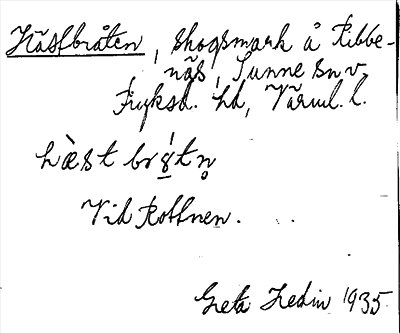 Hästbråten, skogsmark å Ribbe-
näs, Sunne sn v.
Fryksd. hd, Värml. l.
hæ̀st br𝑜́tn̥
Vid Rottnen.
Greta Hedin 1935